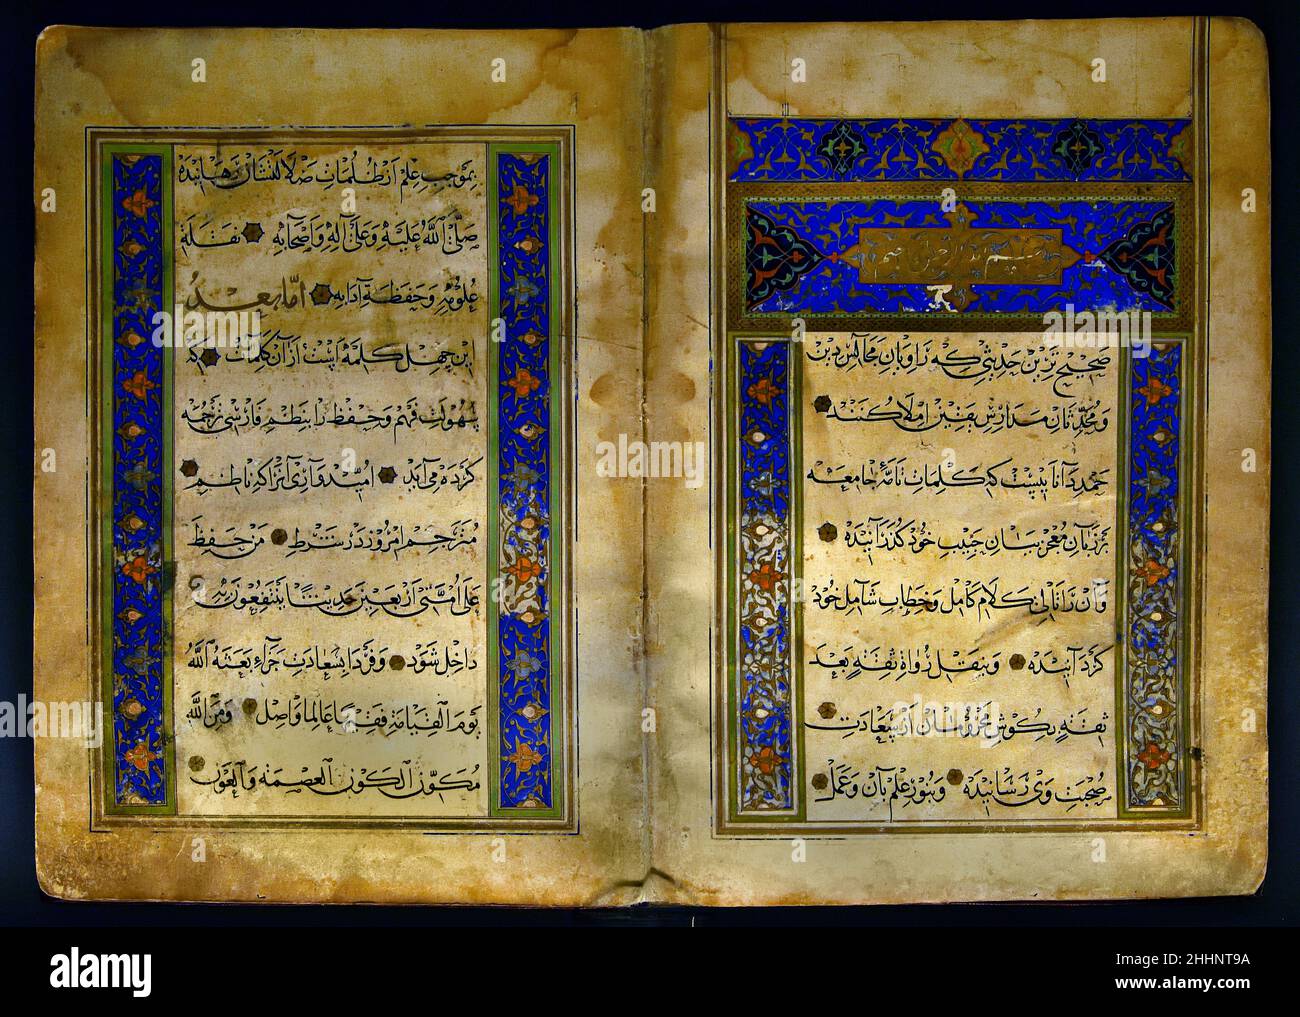 صحیح ترین حدیثی که راویان مجالس دین
و محدثان مدارس یقین املا کنند
حمد داناییست که کلمات تامهٔ جامعه
بر زبان معجز بیان حبیب خود گذرانیده
و آن را تالی کلام کامل و خطاب شامل خود
گردانیده و بنقل رواة ثقة بعد
ثقة بگوش محرومان از سعادت
صحبت وی رسانیده و بنور علم بآن و عمل
بموجب علم از ظلمات ضلالتشان رهانیده
صلی الله علیه وعلی آله واصحابه نقلة
علومه وحفظة آدابه اما بعد
این چهل کلمه است از آن کلمات که
سهولت فهم و حفظ را بنظم فارسی ترجمه
کرده می آید امیدواری آنکه ناظم
مترجم امروز در شرط من حفظ
علی امتی اربعین حدیثا ینتفعون به
داخل شود و فردا بسعادت جزاء بعثه الله
یوم القیامة فقیها عالما واصل ومن الله
مکون الکون العصمة والعون
alamy
Image ID: 2HHNT9A
www.alamy.com